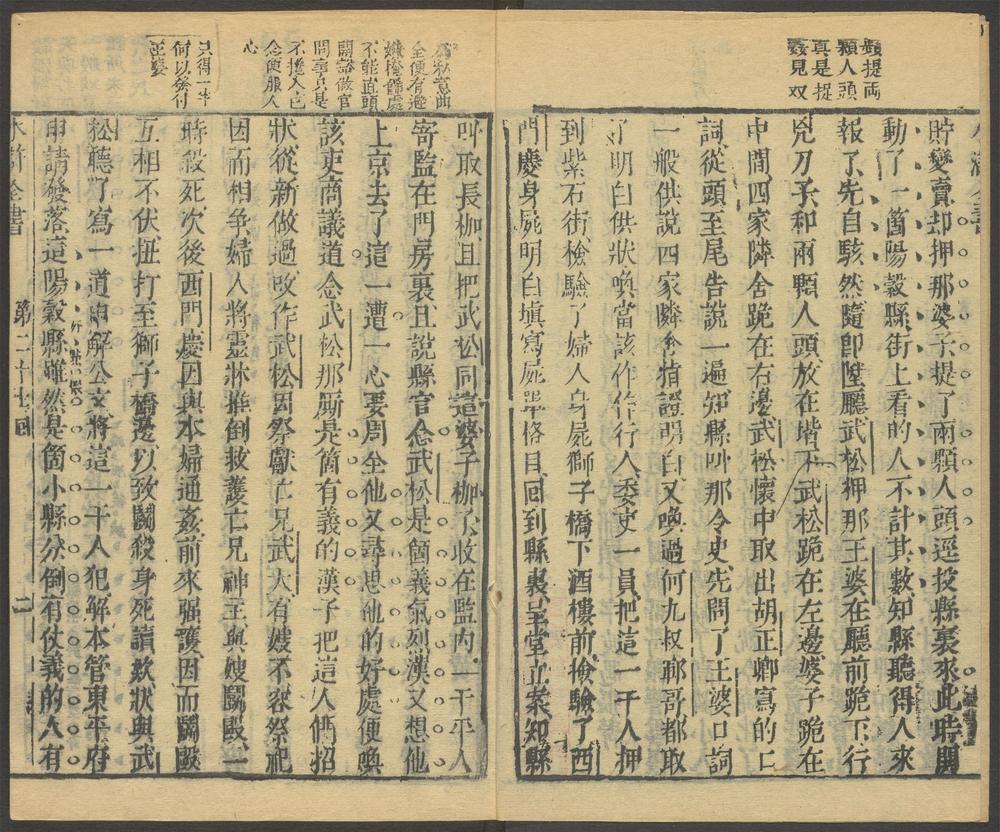 顆提兩
顆人頭
真是捉
姦見双
貯變賣却押那婆子提了兩顆人頭逕投縣裏來此時鬨
動了一箇陽穀縣街上看的人不計其數知縣聽得人來
報了先自駭然隨即陞廳武松押那王婆在廳前跪下行
兇刀子和兩顆人頭放在堦下武松跪在左邊婆子跪在
中間四家隣舍跪在右邊武松懷中取出胡正卿寫的口
詞從頭至尾告說一遍知縣叫那令史先問了王婆口詞
一般供說四家隣舍指證明白又喚過何九叔鄆哥都取
了明白供狀喚當該仵作行人委吏一員把這一干人押
到紫石街檢驗了婦人身屍獅子橋下酒樓前檢驗了西
門慶身屍明白填寫屍單格目回到縣裏呈堂立案知縣
為私意曲
全便有遮
嫌掩飾處
不能直頭
開豁做官
問事只是
不攙入己
念便服人
心
只得一半
何以發付
王婆
叫取長枷且把武松同這婆子枷了收在監內一干平人
寄監在門房裏且說縣官念武松是箇義氣烈漢又想他
上京去了這一遭一心要周全他又尋思他的好處便喚
該吏商議道念武松那厮是箇有義的漢子把這人們招
狀從新做過改作武松因祭獻亡兄武大有嫂不容祭祀
因而相爭婦人將靈牀推倒救護亡兄神主與嫂鬬毆一
時殺死次後西門慶因與本婦通姦前來强護因而鬬毆
互相不伏扭打至獅子橋邊以致鬬殺身死讀欵狀與武
松聽了寫一道申解公文將這一干人犯解本管東平府
申請發落這陽穀縣雖然是箇小縣分倒有仗義的人有
水滸全書
第二十七回
二